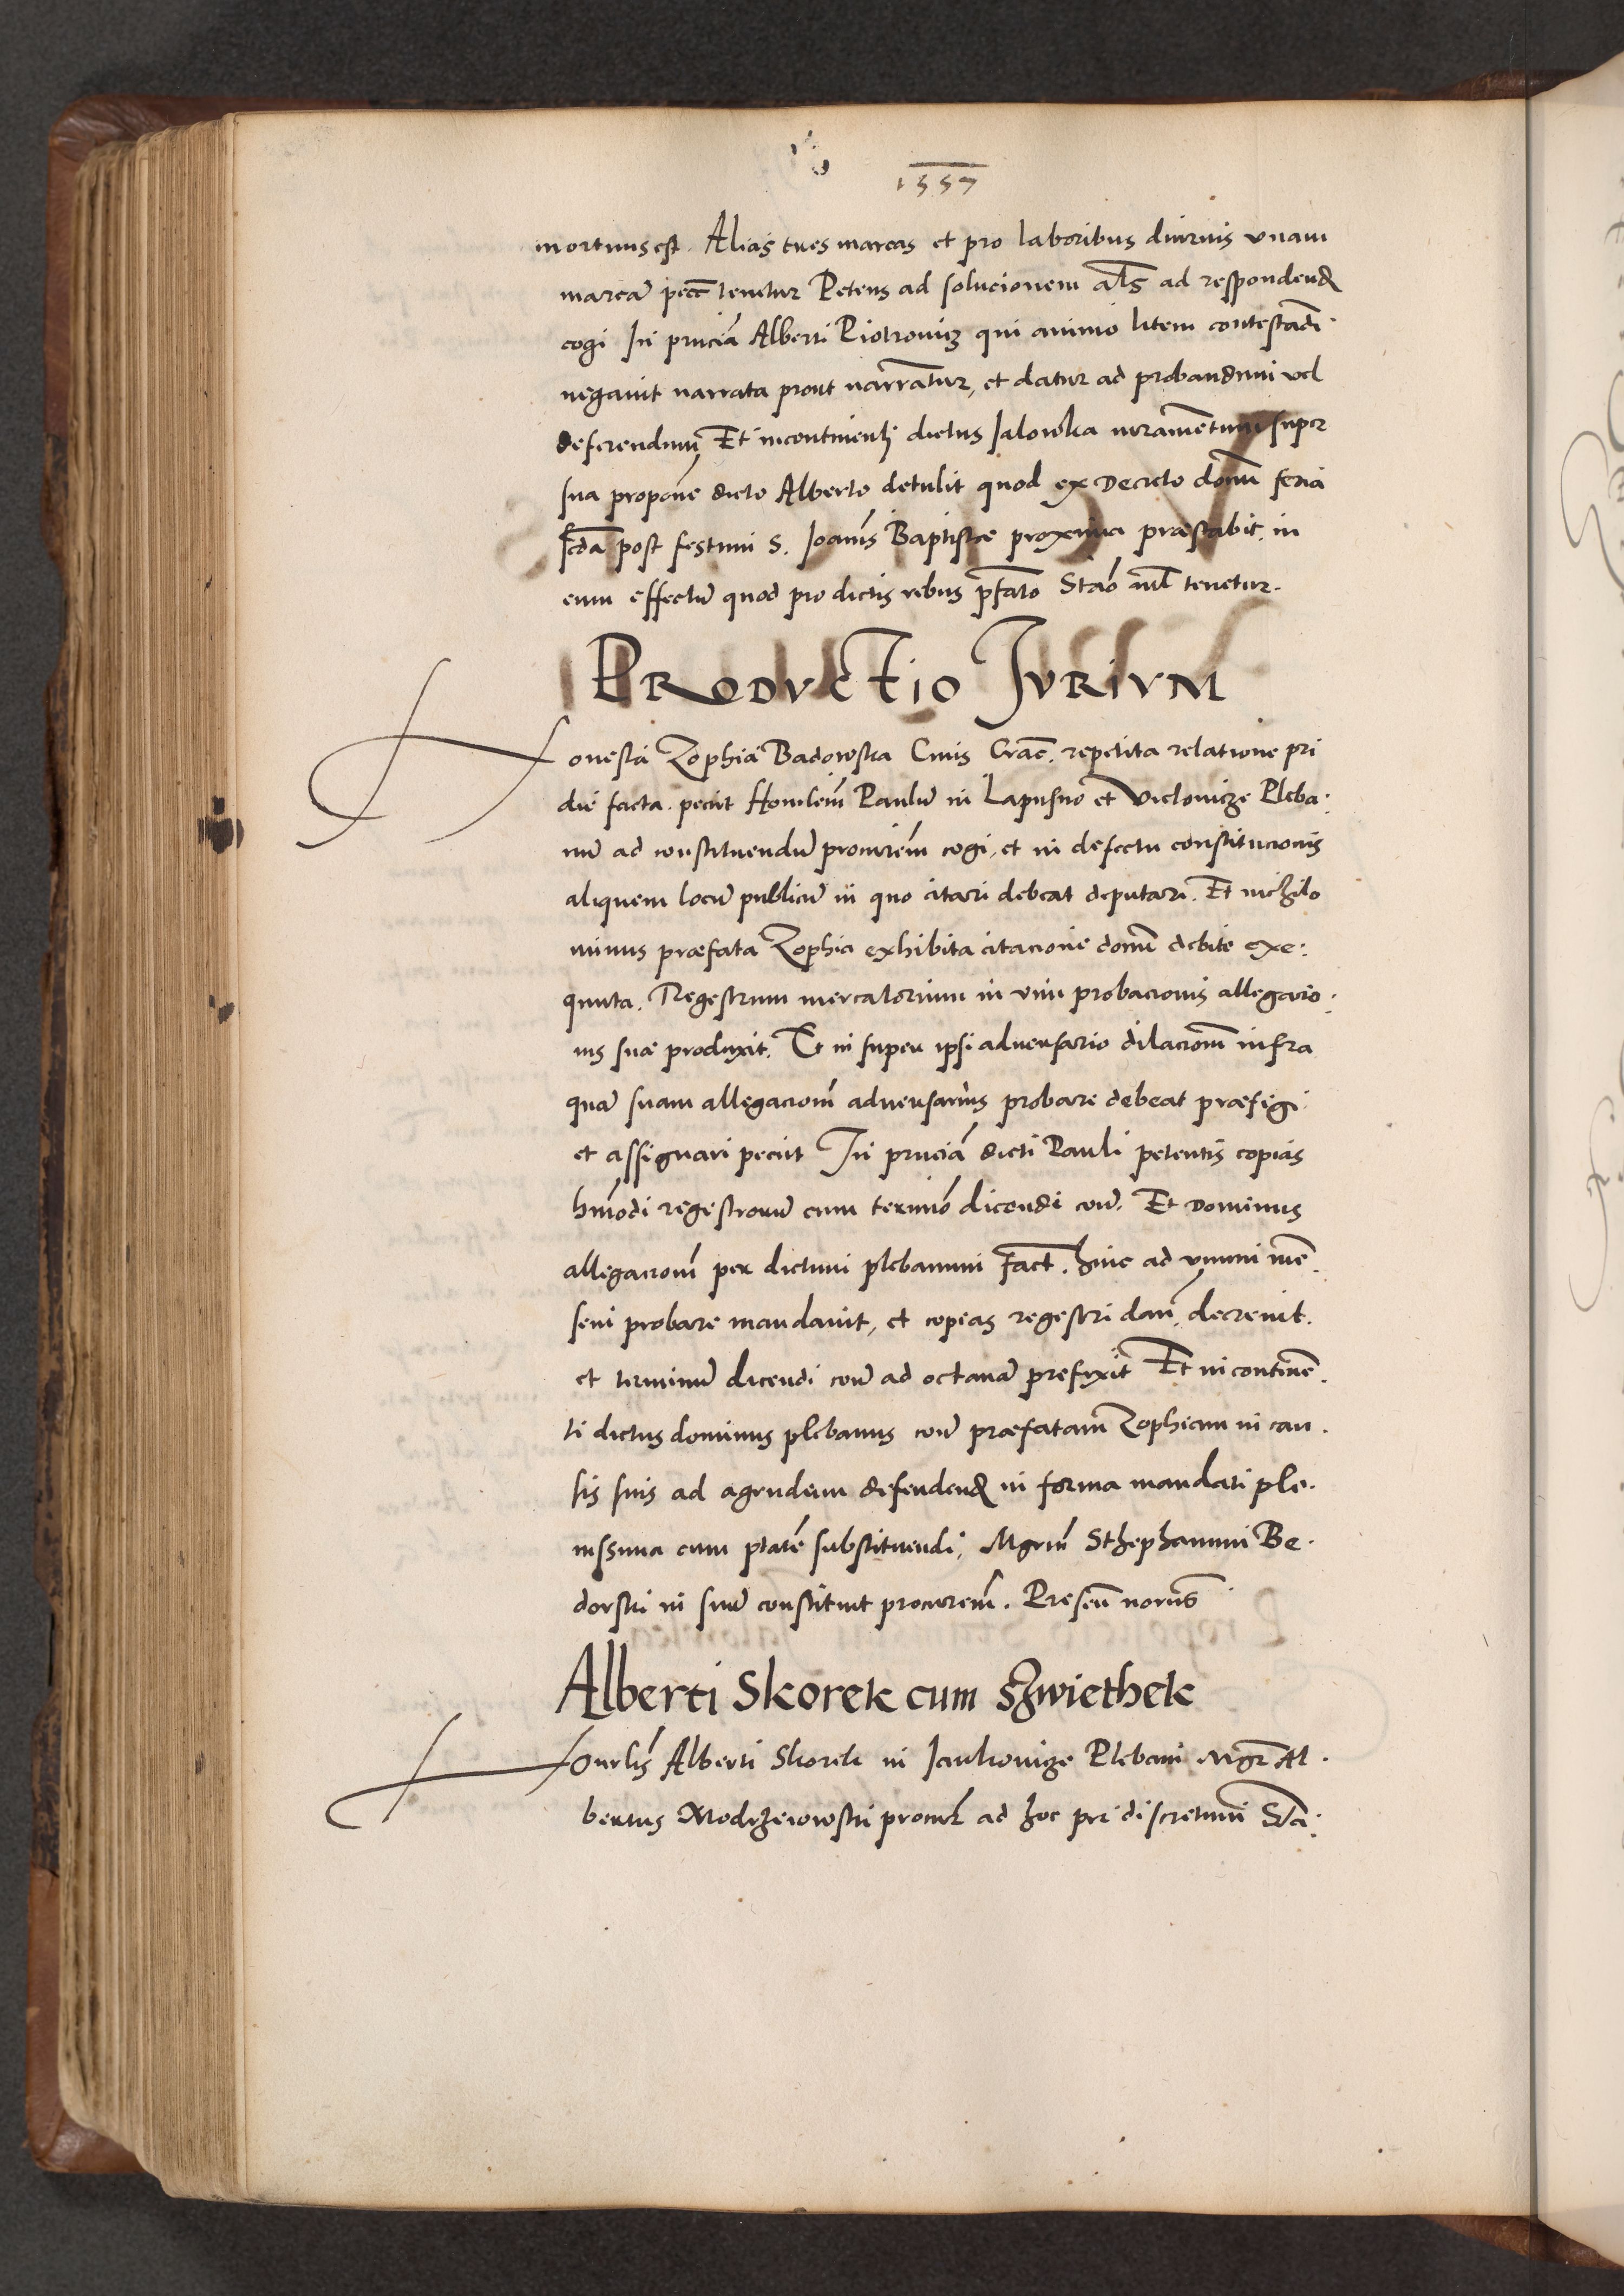 1557
mortuus est. Alias tres marcas et pro laboribus diurnis vnam
marcã pecc̃ tenetur Petens ad solucionem al̃s ad respondend
cogi In pñciã Alberti Piotrowicz qui animo litem contestãdi
negauit narrata prout narrãtur, et datur ad probandum vel
deferendum Et incontinenti dictus Jalowka iuramẽtum super
sua propõne dicto Alberto detulit quod ex Decreto domĩ feria
scd̃a post festum S. Joañis Baptistæ proxima præstabit. in
eum effectũ quod pro dictis rebus p̃fato Stão nil tenetur.
Prodvctio Jvrivm
Honesta Zophia Badowska Ciuis Crac̃. repetita relatione pri
die facta. peciit Honclem̃ Paulũ in Lapusno et Viclowicze Pleba:
nũ ad constituendũ procurẽm cogi, et in defectu constitucionis
aliquem locũ publicũ in quo citari debeat deputari. Et nichilo
minus præfata Zophia exhibita citacione domĩ debite exe:
quuta. Regestrum mercatorium in vim probacionis allegacio:
nis suæ produxit. Et in super ipsi aduersario dilacionẽ infra
quã suam allegacionẽ aduersarius probare debeat præfigi
et assignari peciit In pñciã dicti Pauli petentis copias
hm̃odi regestrorũ cum termĩo dicendi cont̃. Et Dominus
allegacionẽ per dictum plebanum fact̃. hinc ad vnum mẽ.
sem probare mandauit, et copias regestri darĩ, decreuit.
et terminũ dicendi cont̃ ad octauã prefixit Et in continẽ.
ti dictus dominus plebanus cont̃ præfatam Zophiam in cau.
sis suis ad agendum defendend in forma mandati ple.
nissima cum ptãte substituendi, Mgrum̃ Sthephanum Be.
dorski in suũ constituit procurẽm. Presẽn norũs
Alberti Skorek cum Szwiethek
Honrlis̃ Alberti Skorek in Jankowicze Plebani Mgr̃ Al.
bertus Modrzeiowski procur̃ ad hoc per discretum Stã: